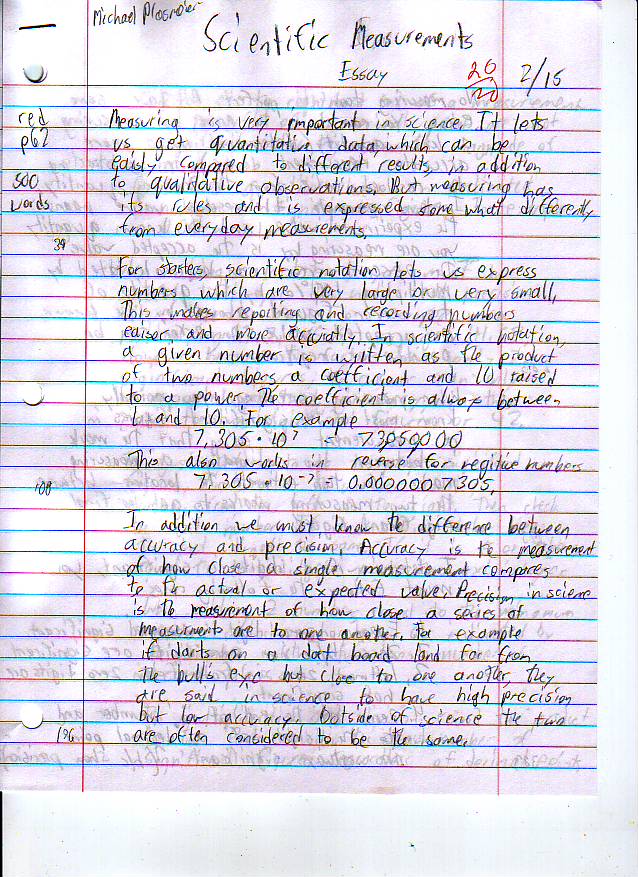 Michael
Scientific Measurements
Essay
20/20
2/15
red
p62
500
words
Measuring is very important in science. It lets
us get quantitative data, which can be
eaisly compared to different results, in addition
to qualitative observations. But measuring has
its rules and is expressed some what differently
from everyday measurements.
39
For starters, scientific notation lets us express
numbers which are very large or very small.
This makes reporting and recording numbers
eaiser and more accuratly. In scientific notation,
a given number is written as the product
of two numbers a coefficient and 10 raised
to a power. The coefficient is always between
1 and 10. For example
7,305 • 10⁷ = 73050000
This also works in reverse for negitive numbers
7,305 • 10⁻⁷ = 0.0000007305.
108
In addition we must know the difference between
accuracy and precision. Accuracy is the measurement
of how close a single measurement compares
to the actual or expected value. Precision in science
is the measurement of how close a series of
measurments are to one another. For example
if darts on a dart board land far from
the bull's eye but close to one another, they
are said in science to have high precision
but low accuracy. Outside of science the two
196
are often considered to be the same.